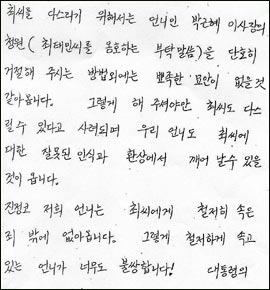 최씨를 다스리기 위해서는 언니인 박근혜 이사장의
청원 ( 최태민씨를 옹호하는 부탁말씀)을 단호히
거절해 주시는 방법외에는 뾰족한 묘안이 없을것
같아옵니다. 그렇게 해 주셔야만 최씨도 다스
릴수 있다고 사려되며 우리 언니도 최씨에
대한 잘못된 인식과 환상에서 깨어 날수 있을
것이 옵니다.
진정코 저희 언니는 최씨에게 철저히 속은
죄 밖에 없아옵니다. 그렇게 철저하게 속고
있는 언니가 너무도 불쌍합니다! 대통령의